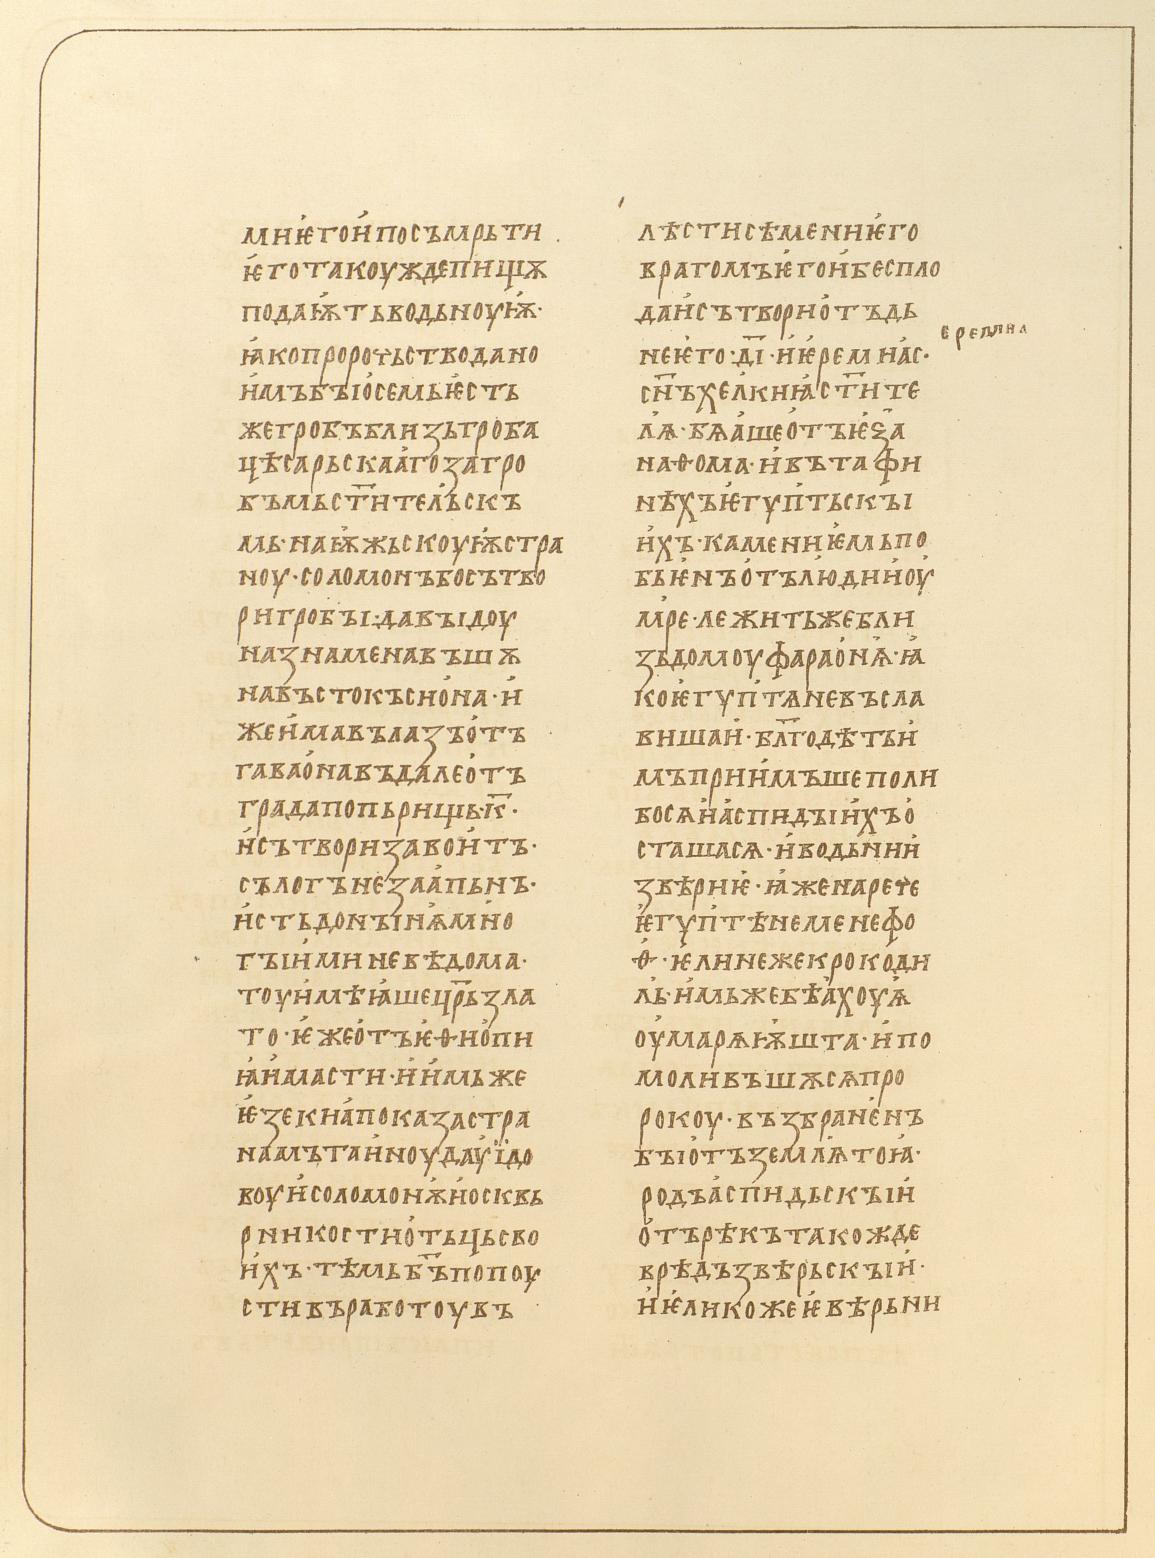 мнѥгои҆посъмрьти
ѥ҆готакоуждепищѫ
подаѭ҆тьводьноуѭ҆·
ꙗ҆копророчьстводано
и҆мъбꙑо҆семьѥ҆сть
жегробъблизьгроба
цѣсарьскаа҆гозагро
бъмьст҃ительскъ
мь·наѭжьскоуѭ҆стра
ноу·соломонъбосътво
ригробꙑ·давꙑдоу
назнаменавъшѫ
навъстокъсио҆на·и҆
жеи҆мавълазъо҆тъ
гавао҆навъдалео҆тъ
градапопьрищь·к҃·
и҆сътворизавои҆тъ·
сълогънезаапьнъ·
и҆стьдонꙑнѧ҆мно
гꙑи҆миневѣдома·
тоуи҆мѣꙗ҆шецр҃ьзла
то·ѥ҆жео҆тъѥ҆ѳио҆пи
ꙗ҆и҆масти·и҆и҆мьже
ѥ҆зекиа҆показастра
намътаи҆ноудаѵїдо
воуи҆соломонѫ҆и҆оскврь
рникостио҆тьцьсво
и҆хъ·тѣмьб҃ъпопоу
стивъработоувъ
лѣстисѣмениѥ҆го
врагомъѥ҆гои҆беспло
даи҆сътворио҆тъдь
неѥ҆го:д҃і·и҆ѥ҆ремиа҆с·
еремиꙗ
сн҃ъхелкиꙗ҆ст҃ите
лѧ·бѧа҆шео҆тъѥ҆ꙁа
наѳома·и҆вътафи
нѣхъѥ҆гѵп҆тьскꙑ
и҆хъ·камениѥ҆мьпо
бьѥ҆нъо҆тълюдии҆оу҆
мре·лежитьжебли
зьдомоуфарао҆нѧ҆·ꙗ҆
коѥ҆гѵп҆тѧневъсла
вишаи҆·бл҃годѣтьи҆
мъприи҆мъшеполи
босѧи҆а҆спидꙑи҆хъо҆
сташасѧ·и҆водьнии҆
звѣриѥ҆·ꙗ҆женарече
ѥ҆гѵп҆тѣнеменефо
ѳ҆·ѥ҆линежекрокоди
ль·и҆мьжебѣа҆хоуѧ҆
оу҆марѧѭ҆шта·и҆по
моливъшѫсѧпро
рокоу·възбране҆нъ
бꙑо҆тъземлѧ҆тоꙗ҆·
родъа҆спидьскꙑи҆
о҆търѣкътакожде
врѣдъзвѣрьскꙑи҆·
и҆ѥ҆ликожеѥ҆вѣрьни